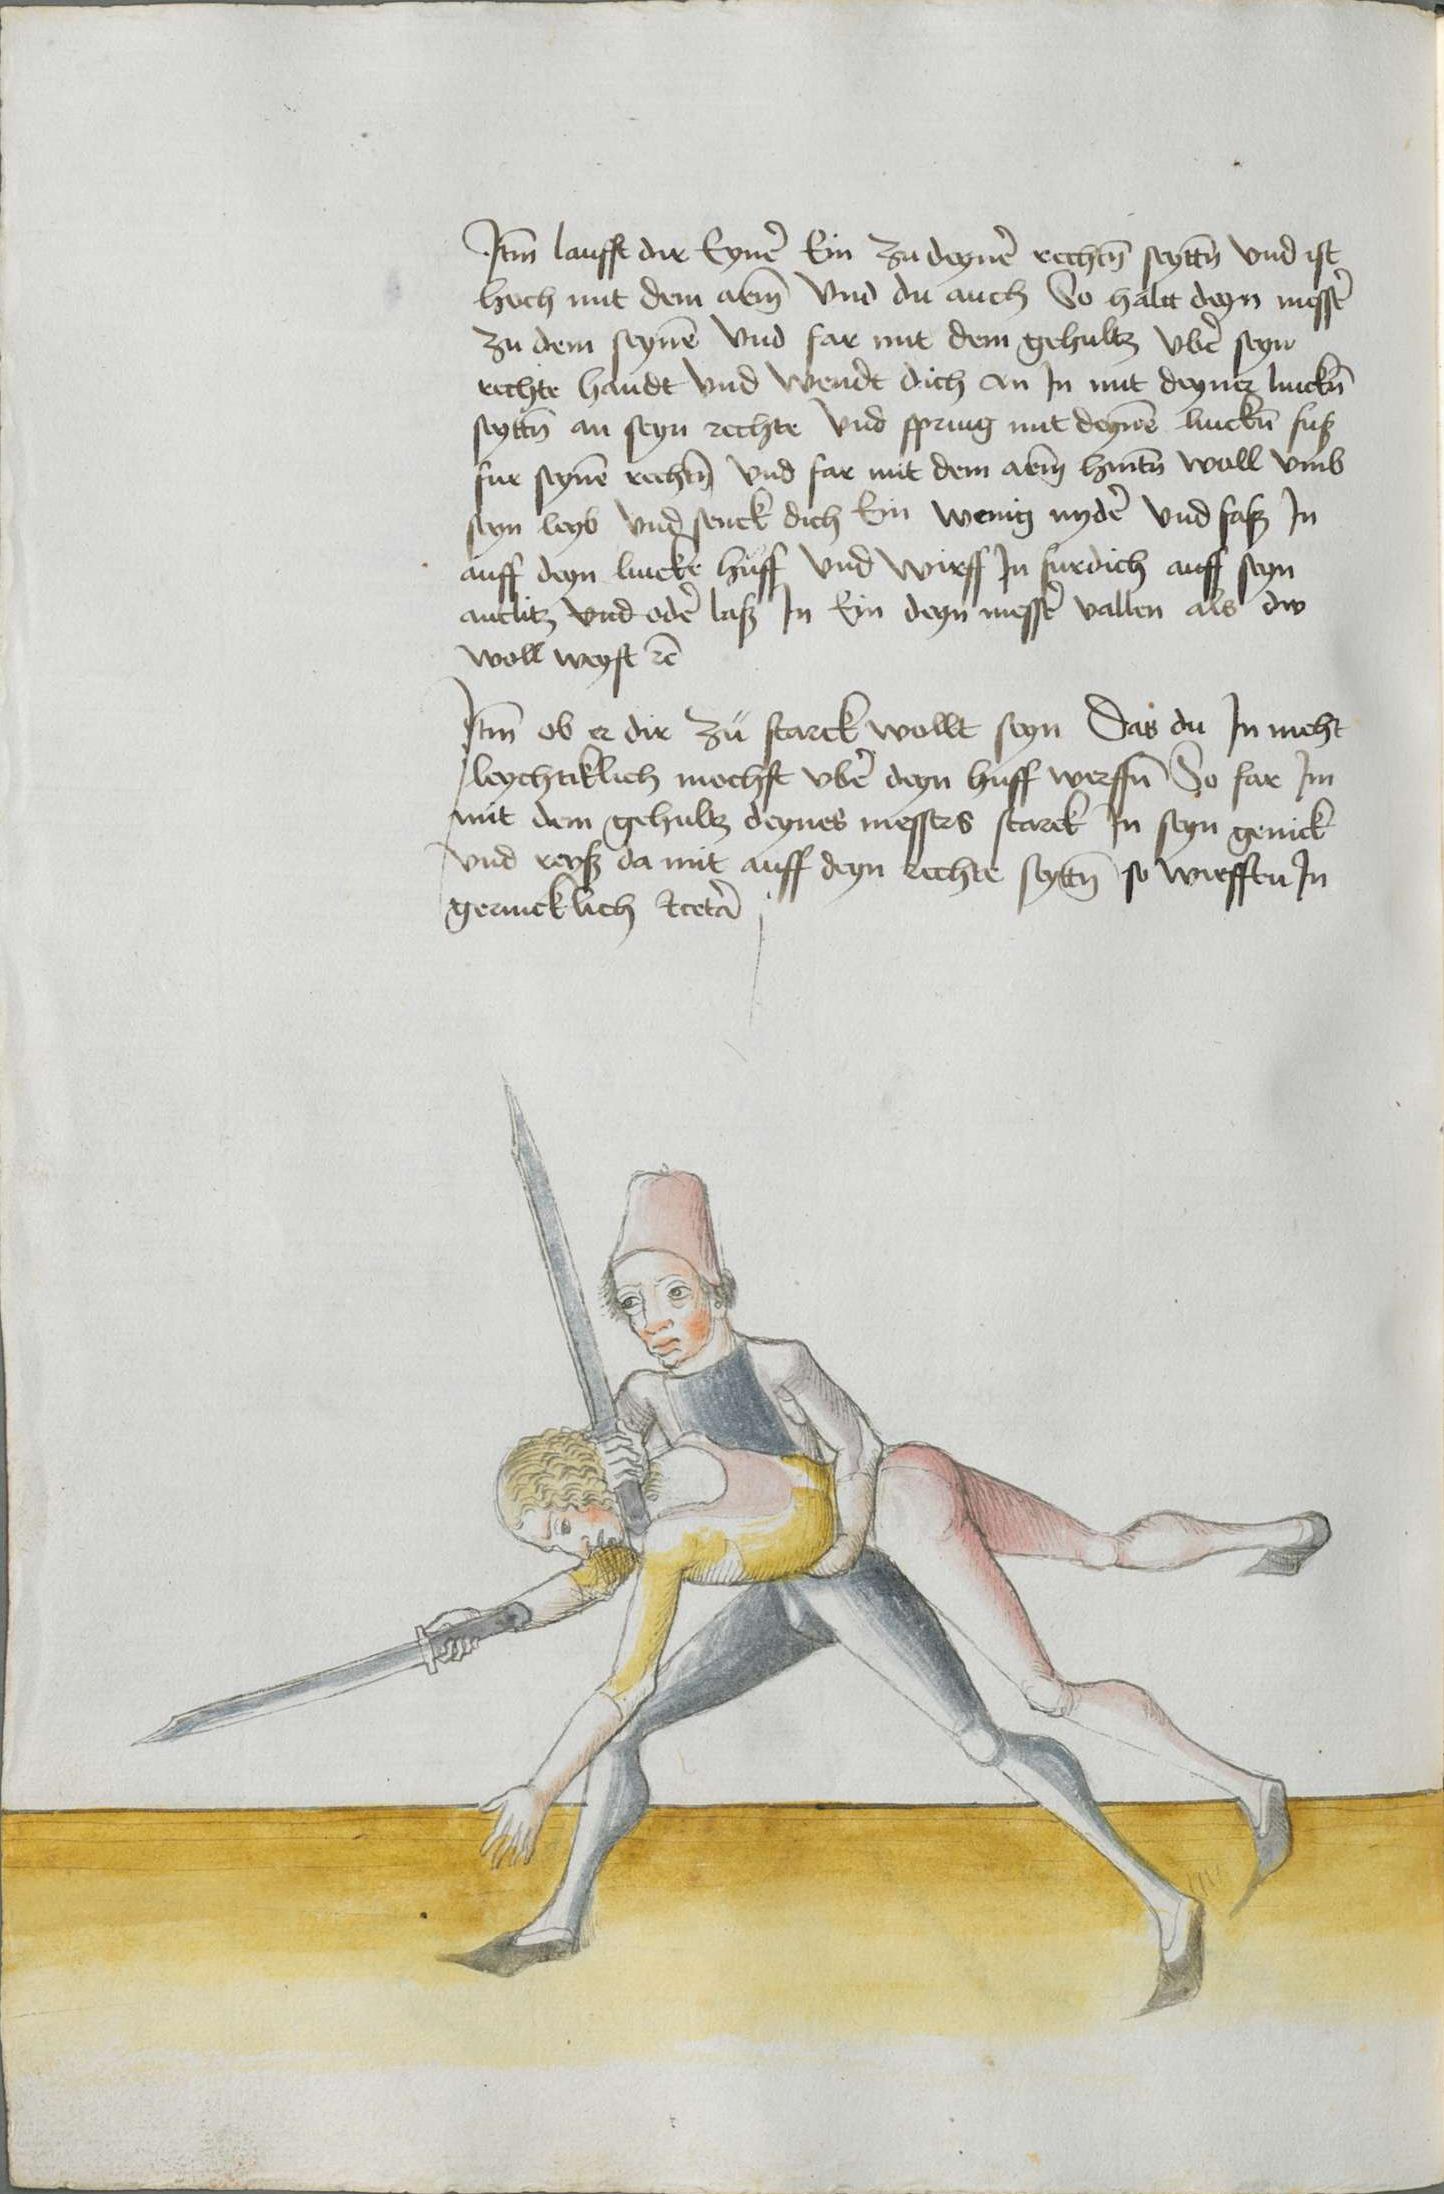 Itm̄ laufft dir Eyne᷑ Ein zu deyne᷑ rechtn̄ seyttn̄ vnd ist
hoch mit dem arm̄ vnd du auch So halt deyn messe᷑
zu dem seynē vnd far mit dem gehultz vbe᷑ seyn
rechte handt vnd wendt dich an In mit deyner linckn̄
seyttn̄ an seyn rechte vnd spring mit deynē linckn̄ fuß
fur seynē rechtn̄ vnd far mit dem arm̄ hintn̄ woll vmb
seyn leyb vnd senck dich Ein wenig nyde᷑ vnd faß In
auff deyn lincke huff vnd wirff In fur dich auff seyn
antlitz vnd ode᷑ laß In Ein deyn messe᷑ vallen als dw
woll weyst ꝛc̄
Itm̄ ob er dir zü starck wollt seyn Das du In nicht
leychtiklich mochst vbe᷑ deyn huff werffn̄ So far Im
mit dem gehultz deynes messers starck In seyn genick
vnd reyß da mit auff deyn rechte seyttn̄ so wirfftu In
gerincklich Etceta᷑